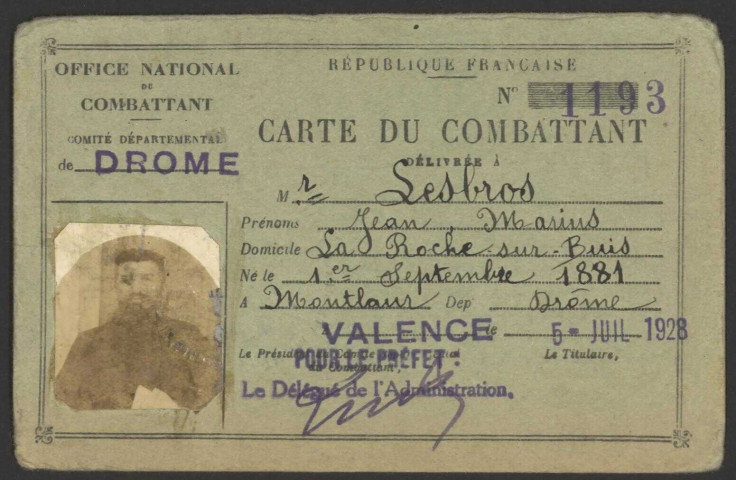 OFFICE NATIONAL
DU
COMBATTANT
COMITÉ DÉPARTEMENTAL
de DROME
RÉPUBLIQUE FRANCAISE
N° 1193
CARTE DU COMBATTANT
DÉLIVRÉE A
M r Lesbros
Prénoms Jean Marius
Domicile La Roche-sur-Buis
Né le 1er Septembre 1881
A Montlaur Dep Drôme
VALENCE le 5 - JUIL 1928
Le Président du Comité
du Combattant,
POUR LE PRÉFET:
Le Titulaire,
Le Délégué de l'Administration.